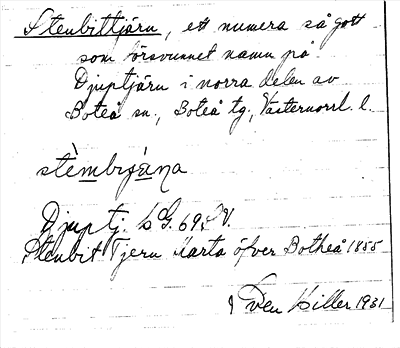 Stenbittjärn, ett numera så gott
som försvunnet namn på
Djuptjärn i norra delen av
Boteå sn., Boteå tg, Västernorrl. l.
Djuptj. bG. 69, V.
Stenbit Tjern Karta öfver Botheå 1855
Sven Hiller 1931